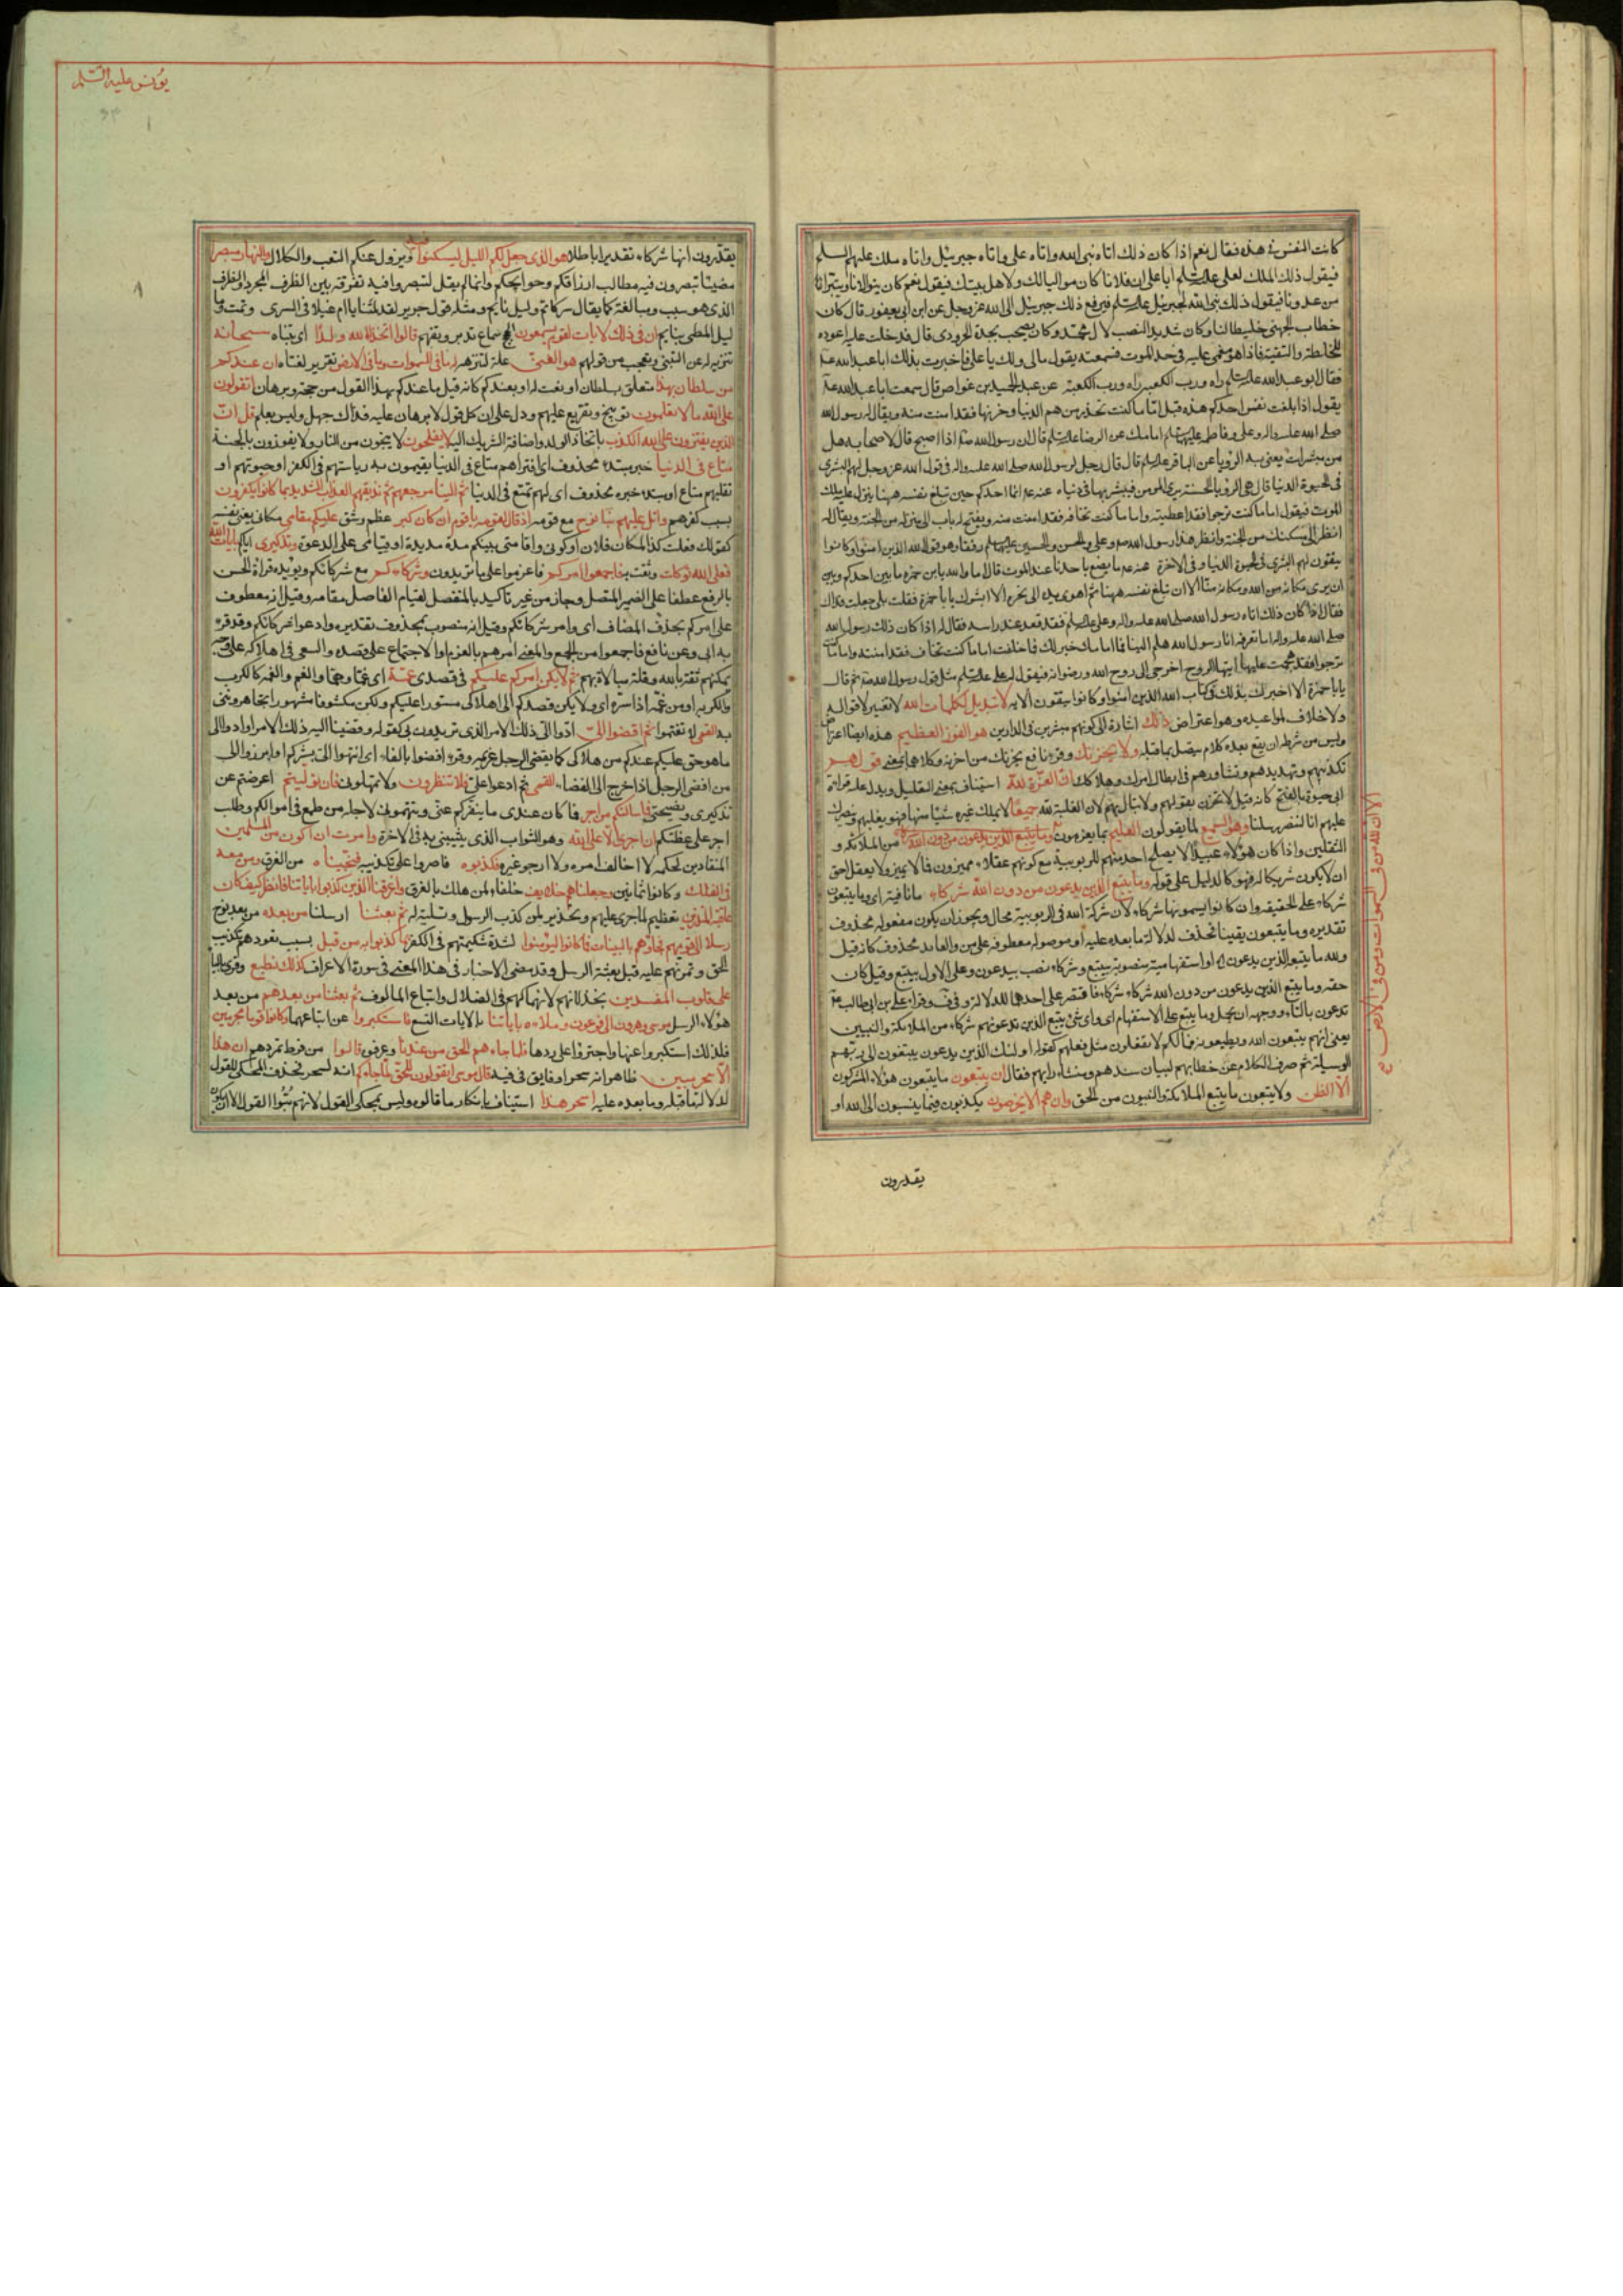 كانت النفس في هذه فقال نعم اذا كان ذلك اتاه نبي الله واتاه علي واتاه جبرئيل واتاه ملك عليهم السلم
فيقول ذلك الملك لعلي عليه السلم يا علي ان فلانا كان مواليا لك ولاهل بيتك فيقول نعم كان يتولانا ويتبرا
من عدونا فيقول ذلك نبي الله لجبرئيل عليه السلم فيرفع ذلك جبرئيل الى الله عز وجل عن ابن ابي يعفور قال كان
خطاب الجهني خليطا لنا وكان شديد النصب لال محمد وكان يصحب نجدة الحروري قال فدخلت عليه اعوده
للخلطة والتقية فاذا هو مغمى عليه في حد الموت فسمعته يقول مالي ولك يا علي فاخبرت بذلك ابا عبد الله ع
فقال ابو عبد الله عليه السلم راه ورب الكعبة راه ورب الكعبة عن عبد الحميد بن عواض قال سمعت ابا عبد الله ع
يقول اذا بلغت نفس احدكم هذه قيل له اما ما كنت تحذر من هم الدنيا وحزنها فقد امنت منه ويقال له رسول الله
صلى الله عليه واله وعلي وفاطمة عليهم السلم امامك عن الرضا عليه السلم قال ان رسول الله ص اذا اصبح قال لاصحابه هل
من مبشرات يعني به الرؤيا عن الباقر عليه السلم قال قال رجل لرسول الله صلى الله عليه واله في قول الله عز وجل لهم البشرى
في الحيوة الدنيا قال هي الرؤيا الحسنة يرى المؤمن فيبشر بها في دنياه عنه ع انما احدكم حين تبلغ نفسه ههنا ينزل عليه ملك
الموت فيقول اما ما كنت ترجوا فقد اعطيته واما ما كنت تخافه فقد امنت منه ويفتح له باب الى منزله من الجنة ويقال له
انظر الى مسكنك من الجنة وانظر هذا رسول الله ص وعلي والحسن والحسين عليهم السلم رفقاؤك وهو قول الله الذين امنوا وكانوا
يتقون لهم البشرى في الحيوة الدنيا وفي الاخرة
ان يرى مكانه من الله ومكانه منا الا ان تبلغ نفسه ههنا ثم اهوى بيده الى نحره الا ابشرك يا با حمزة فقلت بلى جعلت فداك
فقال اذا كان ذلك اتاه رسول الله صلى الله عليه واله وعلي عليه السلم فقعد عند راسه فقال له اذا كان ذلك رسول الله
صلى الله عليه واله اما تعرفني انا رسول الله هلم الينا فما امامك خير لك فما خلفت اما ما كنت تخاف فقد امنته واما ما كنت
ترجوا فقد هجمت عليه ايتها الروح اخرجي الى روح الله ورضوانه فيقول له علي عليه السلم مثل قول رسول الله ص ثم قال
يا با حمزة الا اخبرك بذلك من كتاب الله الذين امنوا وكانوا يتقون الاية لا تبديل لكلمات الله لا تغيير لاقواله
ولا خلاف لمواعيده وهو اعتراض ذلك اشارة الى كونهم مبشرين في الدارين هو الفوز العظيم هذه ايضا اعتراض
وليس من شرطه ان يقع بعده كلام يتصل بما قبله ولا يحزنك وقرء نافع يحزنك من احزنه وكلاهما بمعنى قولهم
تكذيبهم وتهديدهم وتشاورهم في ابطال امرك وهلاكك ان العزة لله استيناف بمعنى التعليل ويدل عليه قراءة
ابي حيوة بالفتح كانه قيل لا تحزن بقولهم ولا تبال بهم لان الغلبة لله جميعا لا يملك غيره شيئا منها فهو يغلبهم وينصرك
عليهم انا لننصر رسلنا وهو السميع لما يقولون العليم بما يعزمون
الثقلين واذا كان هؤلاء عبيدا لا يصلح احد منهم للربوبية مع كونهم عقلاء مميزون فما لا يميز ولا يعقل احق
ان لا يكون شريكا له فهو كالدليل على قوله وما يتبع الذين يدعون من دون الله شركاء
شركاء على الحقيقة وان كانوا يسمونها شركاء لان شركة الله في الربوبية محال ويجوز ان يكون مفعوله محذوف
تقديره وما يتبعون يقينا فحذف لدلالة ما بعده عليه او موصولة معطوفة على من والعايد محذوف كانه قيل
ولله ما يتبعه الذين يدعون او استفهامية منصوبة بيتبع وشركاء نصب بيدعون وعلى الاول بيتبع وقيل كان
حقه وما يتبع الذين يدعون من دون الله شركاء شركاء فاقتصر على احدهما للدلالة وفي ف وقراء علي بن ابي طالب ع
تدعون بالتاء ووجهه ان يحمل وما يتبع على الاستفهام اي واي شئ يتبع الذين تدعونهم شركاء من الملائكة والنبيين
يعني انهم يتبعون الله ويطيعونه فما لكم لا تفعلون مثل فعلهم كقوله اولئك الذين يدعون يبتغون الى ربهم
الوسيلة ثم صرف الكلام عن خطابهم لبيان سندهم ومنشاء رايهم فقال ان يتبعون ما يتبعون هؤلاء المشركون
الا الظن ولا يتبعون ما يتبع الملائكة والنبيون من الحق وان هم الا يخرصون يكذبون فيما ينسبون الى الله او
الا ان لله من في السموات ومن في الارض
يقدرون
يونس عليه السلم
يقدرون انها شركاء تقديرا باطلا هو الذي جعل لكم الليل لتسكنوا فيه ويزول عنكم التعب والكلال والنهار مبصرا
مضيئا تبصرون فيه مطالب ارزاقكم وحوايجكم وانما لم يقل لتبصروا فيه تفرقة بين الظرف المجرد والظرف
الذي هو سبب ومبالغة كما يقال سركاتم وليل نايم ومثله قول جرير لقد لمتنا يا ام غيلان في السرى ونمت وما
ليل المطي بنايم ان في ذلك لايات لقوم يسمعون سماع تدبر وتفهم قالوا اتخذ الله ولدا اي تبناه سبحانه
تنزيه له عن التبني وتعجب من قولهم هو الغني علة لتنزهه له ما في السموات وما في الارض تقرير لغناه ان عندكم
من سلطان بهذا متعلق بسلطان او نعت له او بعندكم كانه قيل ما عندكم بهذا القول من حجة وبرهان اتقولون
على الله ما لا تعلمون توبيخ وتقريع عليهم ودل على ان كل قول لا برهان عليه فذاك جهل وليس بعلم قل ان
الذين يفترون على الله الكذب باتخاذ الولد واضافة الشريك اليه لا يفلحون لا ينجون من النار ولا يفوزون بالجنة
متاع في الدنيا خبر مبتدء محذوف اي افتراهم متاع في الدنيا يقيمون به رياستهم في الكفر او حيوتهم او
تقلبهم متاع او مبتدء خبره محذوف اي لهم تمتع في الدنيا ثم الينا مرجعهم ثم نذيقهم العذاب الشديد بما كانوا يكفرون
بسبب كفرهم واتل عليهم نبا نوح مع قومه اذ قال لقومه يا قوم ان كان كبر عظم وشق عليكم مقامي مكاني يعني نفسه
كقولك فعلت كذا لمكان فلان او كوني واقامتي بينكم مدة مديدة او قيامي على الدعوة وتذكيري اياكم بايات الله
فعلى الله توكلت وثقت به فاجمعوا امركم فاعزموا على ما تريدون وشركاءكم مع شركائكم ويؤيده قراءة الحسن
بالرفع عطفا على الضمير المتصل وجاز من غير تاكيد بالمنفصل لقيام الفاصل مقامه وقيل انه معطوف
على امركم بحذف المضاف اي وامر شركائكم وقيل انه منصوب بمحذوف تقديره وادعوا شركائكم وقد قرء
به ابي وعن نافع فاجمعوا من الجمع والمعنى امرهم بالعزم او الاجتماع على قصده والسعي في اهلاكه على اي وجه
يمكنهم ثقة بالله وقلة مبالاة بهم ثم لا يكن امركم عليكم في قصدي غمة اي غما وهما والغم والغمة كالكرب
والكربة او من غمه اذا ستره اي ولا يكن قصدكم الى اهلاكي مستورا عليكم ولكن مكشوفا مشهورا تجاهرونني
به ثم اقضوا الي ادوا الي ذلك الامر الذي تريدون بي كقوله وقضينا اليه ذلك الامر او ادوا الي
ما هو حق عليكم عندكم من هلاكي كما يقضي الرجل غريمه وقرء افضوا بالفاء اي انتهوا الي بشركم او ابرزوا الي
من افضى الرجل اذا خرج الى الفضاء ولا تنظرون ولا تمهلون فان توليتم اعرضتم عن
تذكيري ونصيحتي فما سالتكم من اجر فما كان عندي ما ينفركم عني وتتهموني لاجله من طمع في اموالكم وطلب
اجر على عظتكم ان اجري الا على الله وهو الثواب الذي يثيبني به في الاخرة وامرت ان اكون من المسلمين
المنقادين لحكمه لا اخالف امره ولا ارجو غيره فكذبوه فاصروا على تكذيبه فنجيناه من الغرق ومن معه
في الفلك وكانوا ثمانين وجعلناهم خلايف خلفاء لمن هلك بالغرق واغرقنا الذين كذبوا باياتنا فانظر كيف كان
عاقبة المنذرين تعظيم لما جرى عليهم وتحذير لمن كذب الرسول وتسلية له ثم بعثنا ارسلنا من بعده من بعد نوح
رسلا الى قومهم فجاؤهم بالبينات فما كانوا ليؤمنوا لشدة شكيمتهم في الكفر بما كذبوا به من قبل بسبب تعودهم تكذيب
الحق وتمرنهم عليه قبل بعثة الرسل وقد مضى الاخبار في هذا المعنى في سورة الاعراف كذلك نطبع وقرئ بالياء
على قلوب المعتدين بخذلانهم لانهماكهم في الضلال واتباع المالوف ثم بعثنا من بعدهم من بعد
هؤلاء الرسل موسى وهرون الى فرعون وملائه باياتنا بالايات التسع فاستكبروا عن اتباعهما وكانوا قوما مجرمين
فلذلك استكبروا عنها واجترؤا على ردها فلما جاءهم الحق من عندنا وعرفوه قالوا من فرط تمردهم ان هذا
لسحر مبين ظاهر انه سحر او فايق في فنه قال موسى اتقولون للحق لما جاءكم انه لسحر فحذف المحكي للقول
لدلالة ما قبله وما بعده عليه اسحر هذا استيناف بانكار ما قالوه وليس بمحكي القول لانهم بتوا القول الا ان يكون